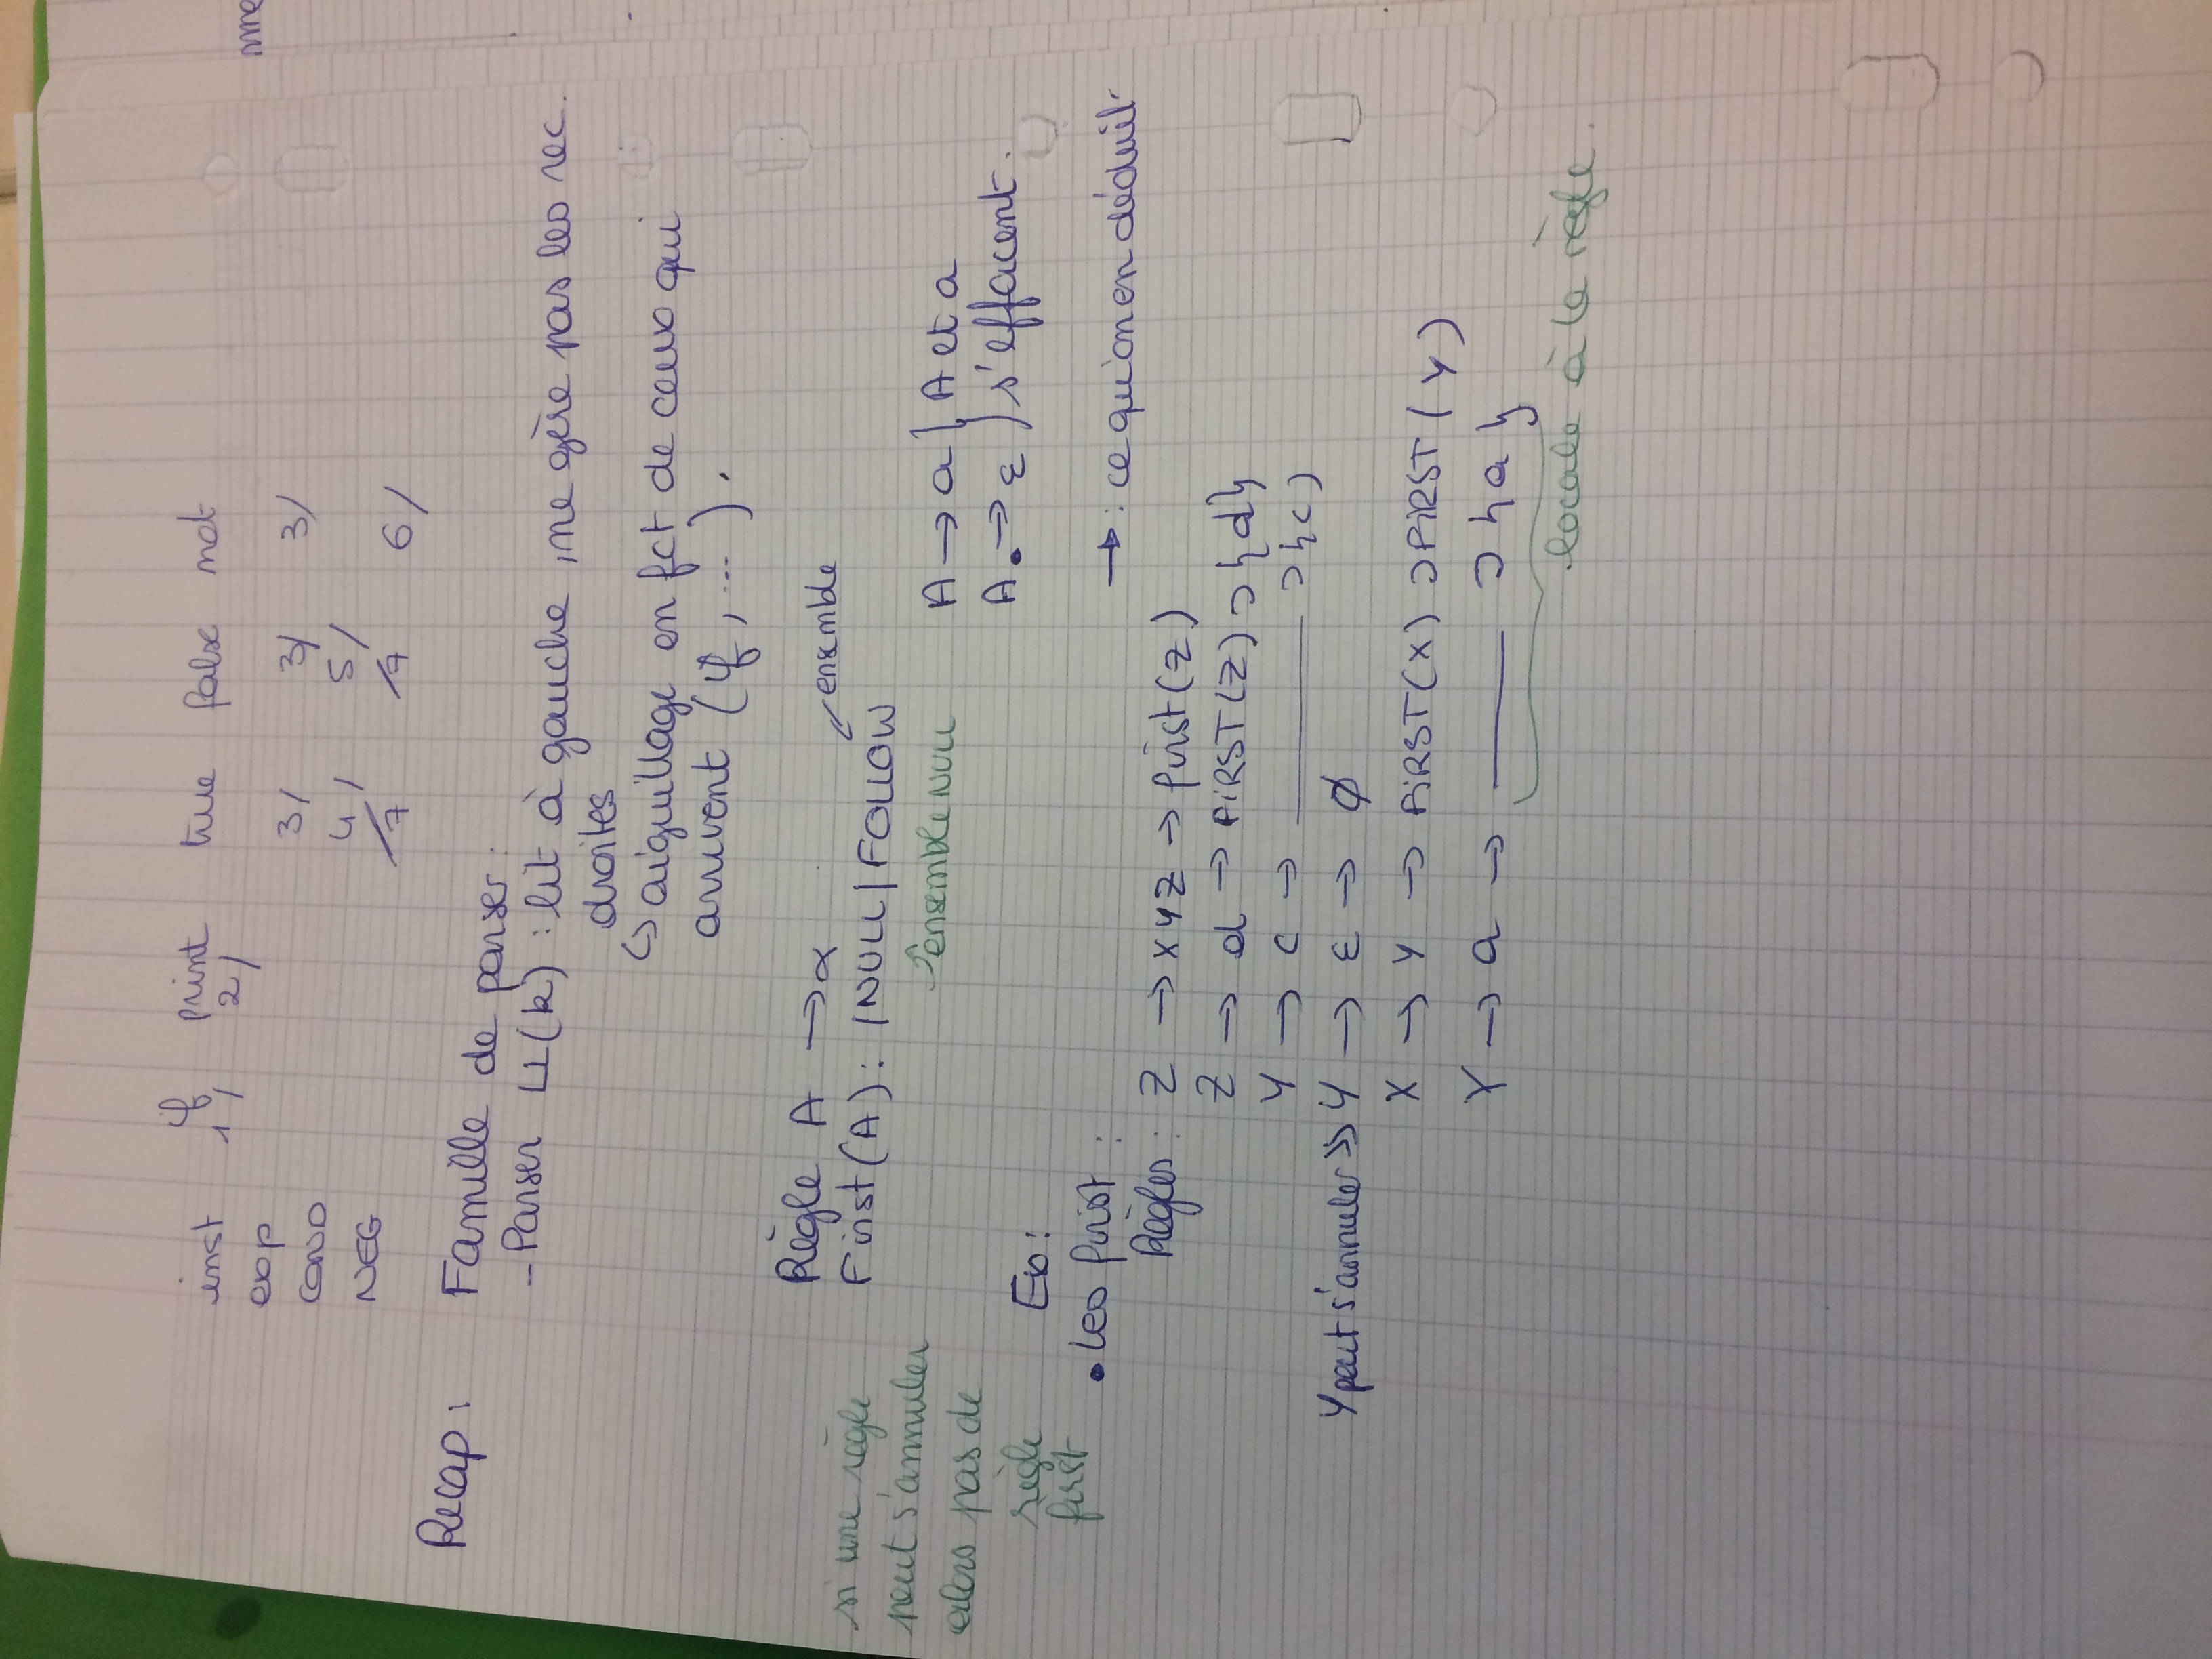 inst if print true false not
1/ 2/
exp
3/ 3/ 3/
COND
4/ 5/
NEG
/7 /7 6/
Recap : Famille de parser :
- Parser LL(k) : lit à gauche, ne gère pas les rec.
droites
↪ aiguillage en fct de ceux qui
arrivent (if, ...).
Règle A → α
ensemble
First(A) : /NULL/FOLLOW
ensemble NULL
si une règle
peut s'annuler
alors pas de
règle
first
A → a } A et a
A. → ε } s'effacent.
Ex :
• Les first :
→ : ce qu'on en déduit
Règles : Z → XYZ → first(Z)
Z → d → FIRST(Z) ⊃ {d}
Y → c → ______ ⊃ {c}
Y peut s'annuler >> Y → ε → ∅
X → Y → FIRST(X) ⊃ FIRST(Y)
X → a → ______ ⊃ {a}
locale à la règle.